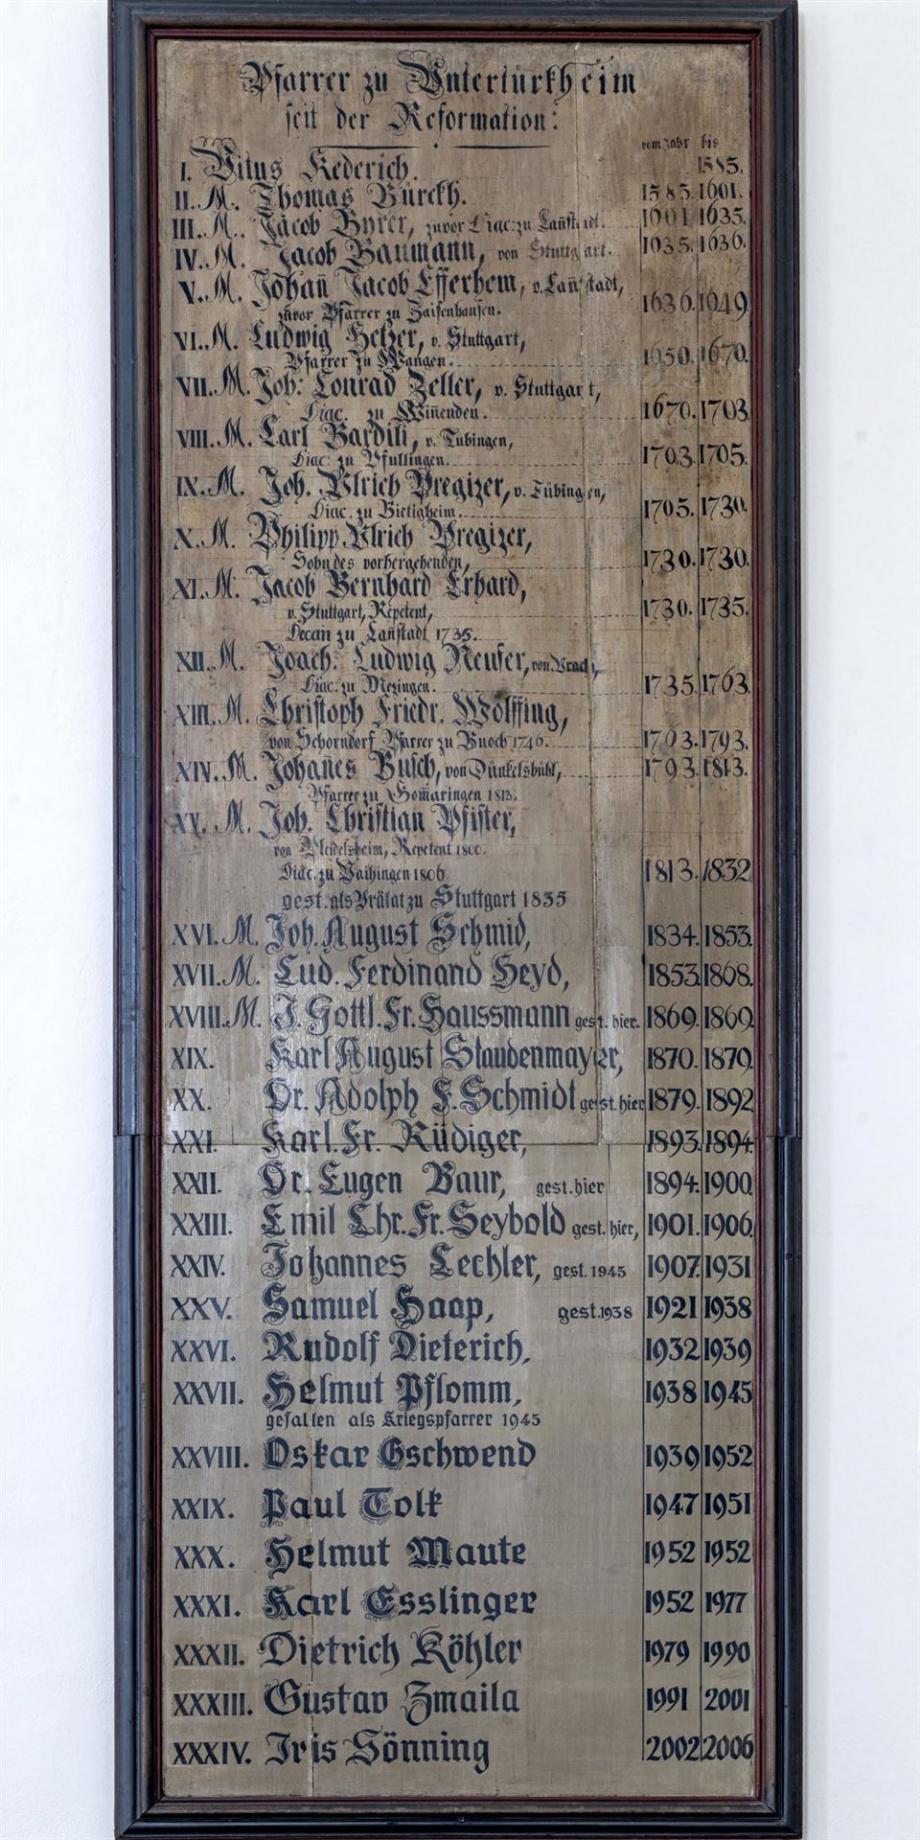 Pfarrer zu Untertürkheim
seit der Reformation:
vom Jahr bis
I. Vitus Kederich. 1585.
II. M. Thomas Bürckh. 1585. 1601.
III. M. Jacob Byrer, zuvor Diac: zu Cañstadt. 1601 1635.
IV. M. Jacob Baumann, von Stuttgart. 1635. 1636.
V. M. Johañ Jacob Efferhem, v. Cañstadt,
zuvor Pfarrer zu Zaisenhausen. 1636. 1649
VI. M. Ludwig Hetzer, v. Stuttgart,
Pfarrer zu Wangen. 1650. 1670.
VII. M. Joh: Conrad Zeller, v. Stuttgart,
Diac. zu Wiñenden. 1670. 1703
VIII. M. Carl Bardili, v. Tübingen,
Diac: zu Pfullingen. 1703. 1705.
IX. M. Joh. Ulrich Pregizer, v. Tübingen,
Diac. zu Bietigheim. 1705. 1730.
X. M. Philipp Ulrich Pregizer,
Sohn des vorhergehenden, 1730. 1730.
XI. M. Jacob Bernhard Erhard,
v. Stuttgart, Repetent, 1730. 1735.
Decan zu Cañstadt 1735.
XII. M. Joach: Ludwig Neuffer, von Urach,
Diac. zu Mezingen. 1735 1763
XIII. M. Christoph Friedr. Wölffing,
von Schorndorf Pfarrer zu Buoch 1746. 1763. 1793.
XIV. M. Johañes Busch, von Dünkelsbühl, 1793. 1813.
Pfarrer zu Gom̃aringen 1813.
XV. M. Joh. Christian Pfister,
von Pleidelsheim, Repetent 1800.
Diac. zu Vaihingen 1806 1813. 1832
gest. als Prälat zu Stuttgart 1835
XVI. M. Joh. August Schmid, 1834. 1853.
XVII. M. Lud. Ferdinand Heyd, 1853. 1868.
XVIII. M. J. Gottl. Fr. Haussmann gest. hier. 1869. 1869.
XIX. Karl August Staudenmayer, 1870. 1879.
XX. Dr. Adolph F. Schmidt gest. hier 1879. 1892
XXI. Karl. Fr. Rüdiger, 1893. 1894.
XXII. Dr. Eugen Baur, gest. hier 1894. 1900
XXIII. Emil Chr. Fr. Seybold gest. hier, 1901. 1906.
XXIV. Johannes Lechler, gest. 1945 1907. 1931
XXV. Samuel Haap, gest. 1938 1921 1938
XXVI. Rudolf Dieterich, 1932 1939
XXVII. Helmut Pflomm, 1938 1945
gefallen als Kriegspfarrer 1945
XXVIII. Oskar Gschwend 1939 1952
XXIX. Paul Tolk 1947 1951
XXX. Helmut Maute 1952 1952
XXXI. Karl Esslinger 1952 1977
XXXII. Dietrich Köhler 1979 1990
XXXIII. Gustav Zmaila 1991 2001
XXXIV. Iris Sönning 2002 2006